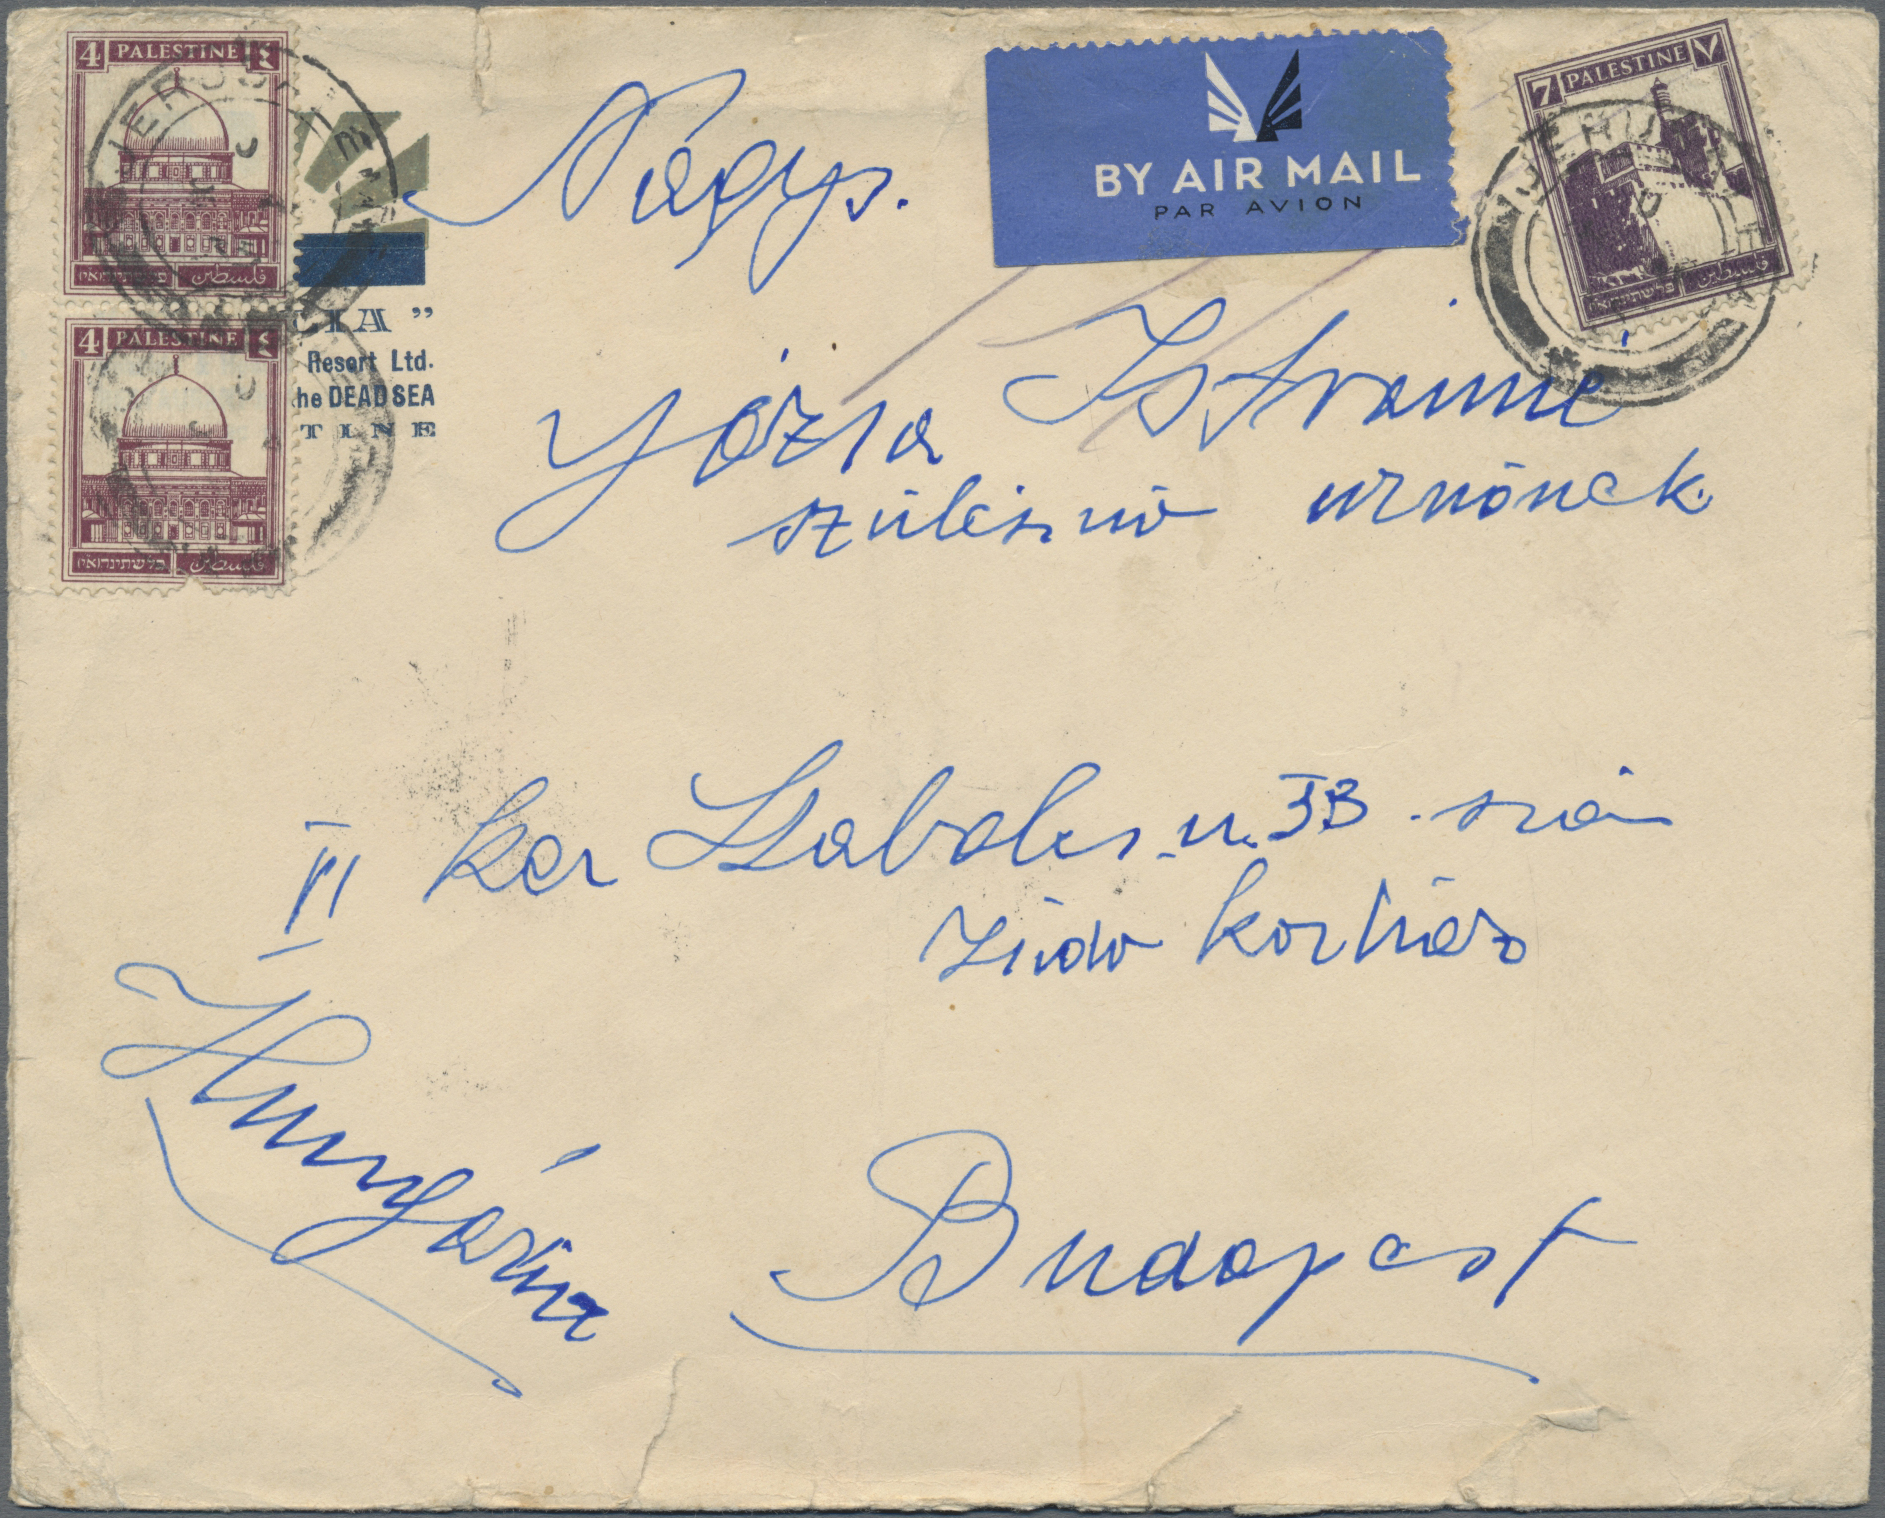 4 PALESTINE ٤
فلسطين פלשתינה(א״י)
4 PALESTINE ٤
فلسطين פלשתינה(א״י)
JERUSALEM
CIA”
Resort Ltd.
he DEAD SEA
TINE
BY AIR MAIL
PAR AVION
7 PALESTINE ٧
فلسطين פלשתינה(א״י)
JERUSALEM
Nagys.
Józsa Istvánné
szülésznő úrnőnek
VI ker Szabolcs u. 33. szám
Zsidó kórház
Hungária
Budapest